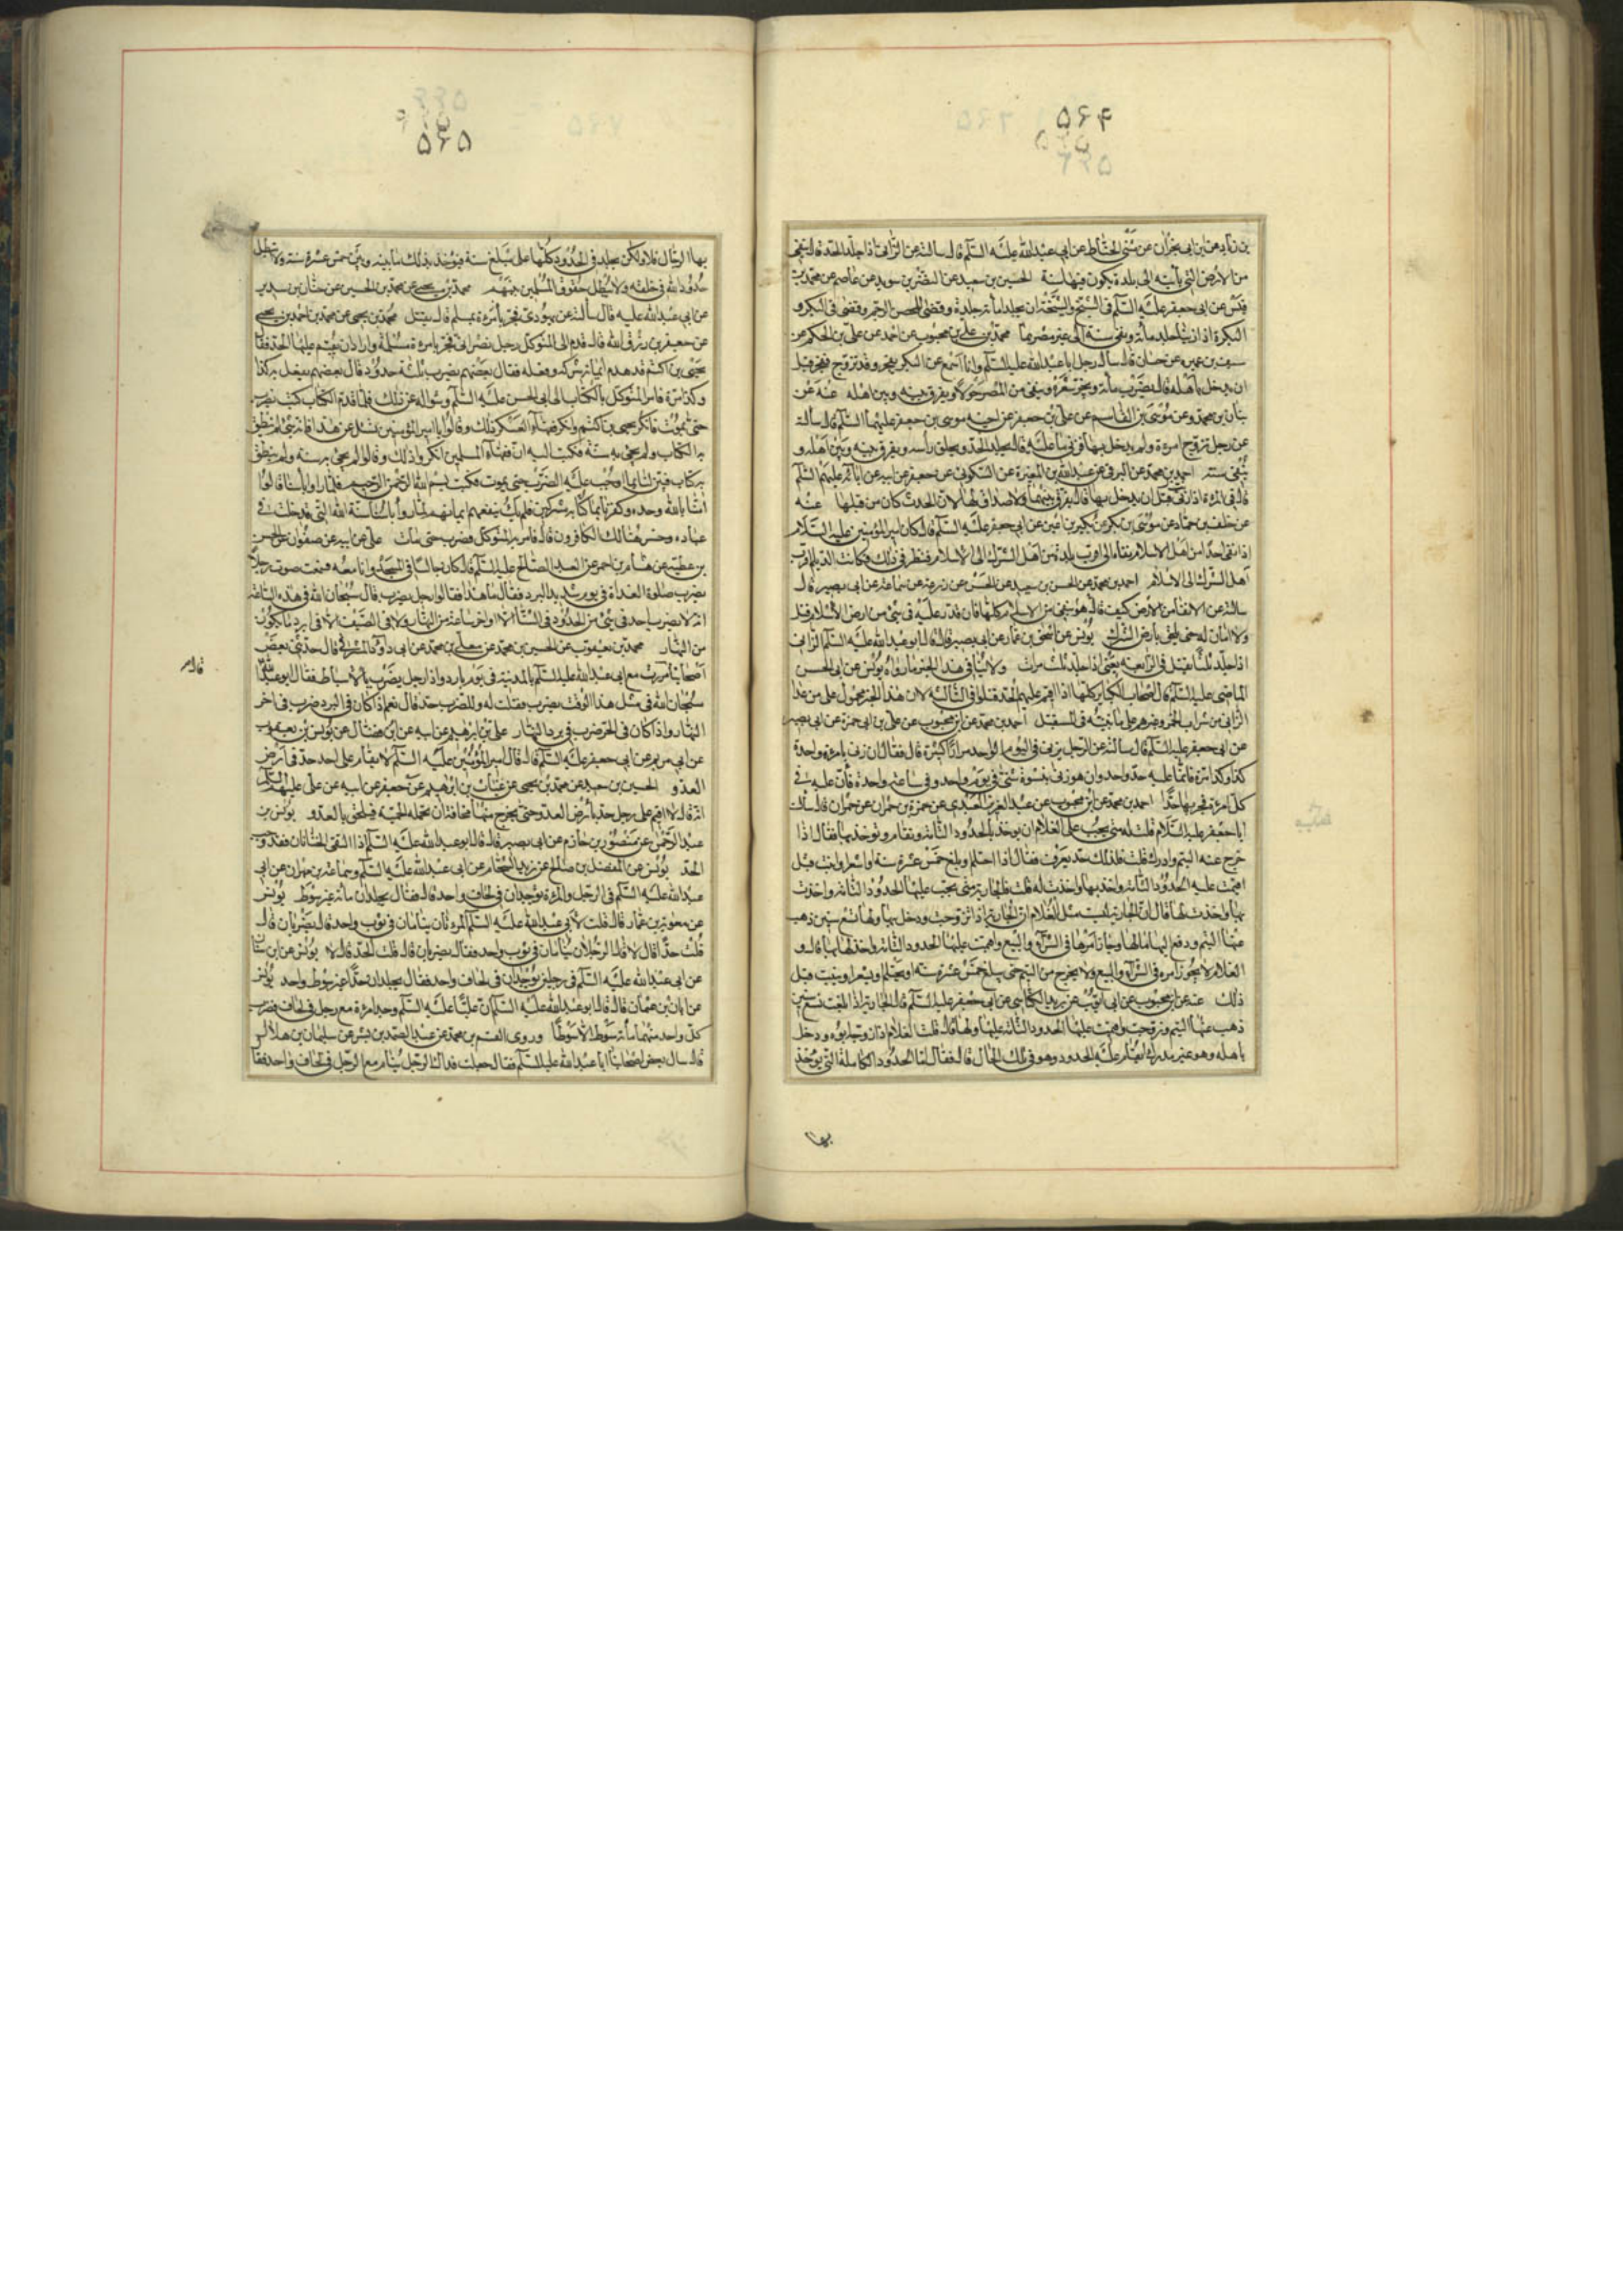 ۵۶۴
بن زياد عن ابن ابى نجران عن مثنى الحناط عن ابى عبدالله عليه السلم قال سالته عن الزانى اذا جلد الحد قال ينفى
من الارض التى ياتيه الى بلدة يكون فيها سنة الحسين بن سعيد عن النضر بن سويد عن عاصم عن محمد بن
قيس عن ابى جعفر عليه السلم فى الشيخ والشيخة ان يجلدا مائة جلدة وقضى للمحصن الرجم وقضى فى البكر و
البكرة اذا زنيا جلد مائة ونفى سنة الى غير مصرهما محمد بن على بن محبوب عن احمد عن على بن الحكم عن
سيف بن عميرة عن حنان قال سال رجل ابا عبدالله عليه السلم وانا اسمع عن البكر يفجر وقد تزوج ففجر قبل
ان يدخل باهله قال يضرب مائة ويجز شعره وينفى من المصر حولا ويفرق بينه وبين اهله عنه عن
بنان بن محمد وعن موسى بن القاسم عن على بن جعفر عن اخيه موسى بن جعفر عليهما السلم قال سالته
عن رجل تزوج امرءة ولم يدخل بها فزنى ما عليه قال يجلد الحد ويحلق راسه ويفرق بينه وبين اهله و
ينفى سنة احمد بن محمد عن البرقى عن عبدالله بن المغيرة عن السكونى عن جعفر عن ابيه عن ابائه عليهم السلم
قال فى المرءة اذا زنت قبل ان يدخل بها قال يفرق بينهما ولا صداق لها لان الحدث كان من قبلها عنه
عن خلف بن حماد عن موسى بن بكر عن بكير بن اعين عن ابى جعفر عليه السلم قال كان امير المؤمنين عليه السلام
اذا نفى احدا من اهل الاسلام نفاه الى اقرب بلد من اهل الشرك الى الاسلام فنظر فى ذلك فكانت الديلم اقرب
اهل الشرك الى الاسلام احمد بن محمد عن الحسن بن سعيد عن الحسن عن زرعه عن سماعة عن ابى بصير قال
سالته عن الانفا من الارض كيف قال هو ينفى من الاسلام كلها فان قدر عليه فى شئ من ارض الاسلام قتل
ولا امان له حتى يلحق بارض الشرك يونس عن اسحق بن عمار عن ابى بصير قال قال ابو عبدالله عليه السلم الزانى
اذا جلد ثلثا يقتل فى الرابعة يعنى اذا جلد ثلث مرات ولا ينافى هذا الخبر ما رواه يونس عن ابى الحسن
الماضى عليه السلم قال اصحاب الكبائر كلها اذا اقيم عليهم الحد قتلوا فى الثالثة لان هذا الخبر محمول على من عدا
الزانى من شراب الخمر وغيرهم على ما نبينه فى المستقبل احمد بن محمد عن ابن محبوب عن على بن ابى حمزة عن ابى بصير
عن ابى جعفر عليه السلم قال سالته عن الرجل يزنى فى اليوم الواحد مرارا كثيرة قال فقال ان زنى بامرءة واحدة
كذا وكذا مرة فانما عليه حد واحد وان هو زنى بنسوة شتى فى يوم واحد وفى ساعة واحدة فان عليه فى
كل امرءة فجر بها حدا احمد بن محمد عن ابن محبوب عن عبد العزيز العبدى عن حمزة بن حمران عن حمران قال سالت
ابا جعفر عليه السلام قلت له متى يجب على الغلام ان يوخذ بالحدود التامة وتقام ويوخذ بها فقال اذا
خرج عنه اليتم وادرك قلت فلذلك حد يعرف فقال اذا احتلم وبلغ خمس عشرة سنة او اشعر او انبت قبل
اقيمت عليه الحدود التامة واخذ بها واخذت له قلت فالجارية متى يجب عليها الحدود التامة واخذت
بها واخذت لها قال ان الجارية ليست مثل الغلام ان الجارية اذا تزوجت ودخل بها ولها تسع سنين ذهب
عنها اليتم ودفع اليها مالها وجاز امرها فى الشراء والبيع واقيمت عليها الحدود التامة واخذ لها بها قال و
الغلام لا يجوز امره فى الشراء والبيع ولا يخرج من اليتم حتى يبلغ خمس عشرة سنة او يحتلم او يشعر او ينبت قبل
ذلك عنه عن ابن محبوب عن ابى ايوب عن يزيد الكناسى عن ابى جعفر عليه السلم قال الجارية اذا بلغت تسع سنين
ذهب عنها اليتم وزوجت واقيمت عليها الحدود التامة عليها ولها قال قلت الغلام اذا زوجه ابوه ودخل
باهله وهو غير مدرك ايقام عليه الحدود وهو فى تلك الحال قال فقال اما الحدود الكاملة التى يوخذ
بها
۵۶۵
بها الرجال فلا ولكن يجلد فى الحدود كلها على مبلغ سنه فيوخذ بذلك ما بينه وبين خمس عشرة سنة ولا تبطل
حدود الله فى خلقه ولا تبطل حقوق المسلمين بينهم محمد بن يحيى عن محمد بن الحسين عن حنان بن سدير
عن ابى عبدالله عليه قال سالته عن يهودى فجر بامرءة مسلمة قال يقتل محمد بن يحيى عن محمد بن احمد بن يحيى
عن جعفر بن رزق الله قال قدم الى المتوكل رجل نصرانى فجر بامرءة مسلمة واراد ان يقيم عليها الحد فقال
يحيى بن اكثم قد هدم ايمانه شركه وفعله فقال بعضهم يضرب ثلثة حدود قال بعضهم يفعل به كذا
وكذا مرة فامر المتوكل بالكتاب الى ابى الحسن عليه السلم وسواله عن ذلك فلما قدم الكتاب كتب يضرب
حتى يموت فانكر يحيى بن اكثم وانكر فقهاء العسكر ذلك وقالوا يا امير المؤمنين يسئل عن هذا فانه شئ لم ينطق
به الكتاب ولم يجئ به سنة فكتب اليه ان فقهاء المسلمين انكروا ذلك وقالوا لم يجئ به سنة ولم ينطق
به كتاب فبين لنا بما اوجبت عليه الضرب حتى يموت فكتب بسم الله الرحمن الرحيم فلما راوا باسنا قالوا
امنا بالله وحده وكفرنا بما كنا به مشركين فلم يك ينفعهم ايمانهم لما راوا باسنا سنة الله التى قد خلت فى
عباده وخسر هنالك الكافرون قال فامر به المتوكل فضرب حتى مات على عن ابيه عن صفوان عن الحسين
بن عطية عن هشام بن احمر عن العبد الصالح عليه السلم قال كان جالسا فى المسجد وانا معه فسمعت صوت رجل
يضرب صلوة الغداة فى يوم شديد البرد فقال ما هذا فقالوا رجل يضرب قال سبحان الله فى هذه الساعة
انه لا يضرب احد فى شئ من الحدود فى الشتاء الا اواخر ساعة من النهار ولا فى الصيف الا فى ابرد ما يكون
من النهار محمد بن يعقوب عن الحسين بن محمد عن معلى بن محمد عن ابى داود المسترق قال حدثنى بعض
قال
اصحابنا مررت مع ابى عبدالله عليه السلم بالمدينة فى يوم بارد واذا رجل يضرب بالاسياط فقال ابو عبدالله
سبحان الله فى مثل هذا الوقت يضرب فقلت له وللضرب حد قال نعم اذا كان فى البرد ضرب فى اخر
النهار واذا كان فى الحر ضرب فى برد النهار على بن ابرهيم عن ابيه عن ابن فضال عن يونس بن يعقوب
عن ابى مريم عن ابى جعفر عليه السلم قال قال امير المؤمنين عليه السلم لا يقام على احد حد فى ارض
العدو الحسين بن سعيد عن محمد بن يحيى عن غياث بن ابرهيم عن جعفر عن ابيه عن على عليهم السلم
انه قال لا اقيم على رجل حد بارض العدو حتى يخرج منها مخافة ان تحمله الحمية فيلحق بالعدو يونس بن
عبد الرحمن عن منصور بن حازم عن ابى بصير قال قال ابو عبدالله عليه السلم اذا التقى الختانان فقد وجب
الحد يونس عن المفضل بن صالح عن زيد الشحام عن ابى عبدالله عليه السلم وسماعة بن مهران عن ابى
عبدالله عليه السلم فى الرجل والمرءة يوجدان فى لحاف واحد قال فقال يجلدان مائة غير سوط يونس
عن معوية بن عمار قال قلت لابى عبدالله عليه السلم المرءتان ينامان فى ثوب واحد قال يضربان قال
قلت حدا قال لا قلت الرجلان ينامان فى ثوب واحد فقال يضربان قال قلت الحد قال لا يونس عن ابن سنان
عن ابى عبدالله عليه السلم فى رجلين يوجدان فى لحاف واحد فقال يجلدان حدا غير سوط واحد يونس
عن ابان بن عثمان قال قال ابو عبدالله عليه السلم ان عليا عليه السلم وجد امرءة مع رجل فى لحاف فضرب
كل واحد منهما مائة سوط الا سوطا وروى القسم بن محمد عن عبد الصمد بن بشير عن سليمان بن هلال
قال سال بعض اصحابنا ابا عبدالله عليه السلم فقال جعلت فداك الرجل ينام مع الرجل فى لحاف واحد فقال